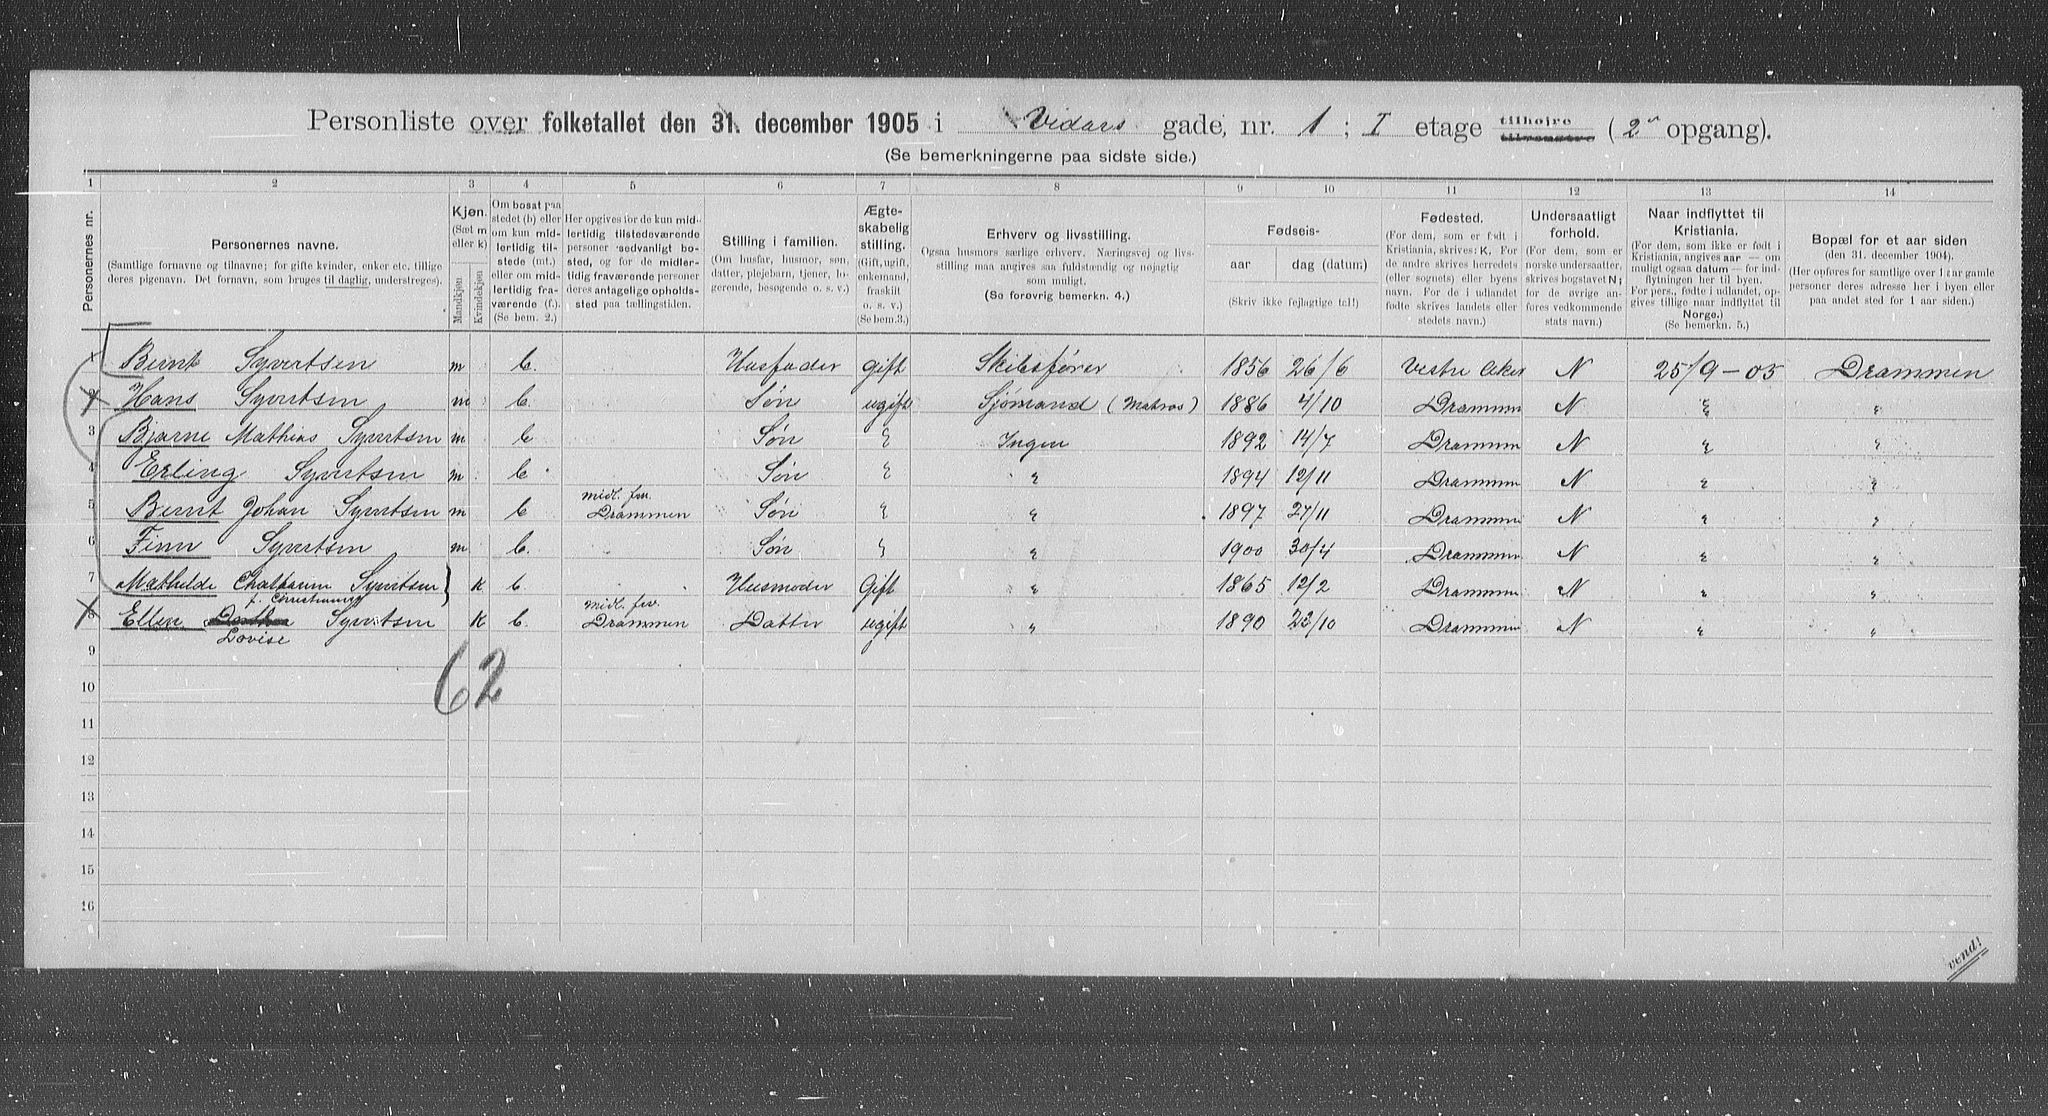 Personliste over folketallet den 31. december 1905 i Vidars gade, nr. 1 ; I etage tilhøjre tilvenstre ( 2 opgang).
(Se bemerkningerne paa sidste side.)
1 2 3 4 5 6 7 8 9 10 11 12 13 14
Personernes nr.
Personernes navne.
(Samtlige fornavne og tilnavne; for gifte kvinder, enker etc. tillige
deres pigenavn. Det fornavn, som bruges til daglig, understreges).
Kjøn.
(Sæt m
eller k)
Mandkjøn
Kvindekjøn
Om bosat paa
stedet (b) eller
om kun mid-
lertidig til-
stede (mt.)
eller om mid-
lertidig fra-
værende (f.).
(Se bem. 2.)
Her opgives for de kun mid-
lertidig tilstedeværende
personer sedvanligt bo-
sted, og for de midler-
tidig fraværende personer
deres antagelige opholds-
sted paa tællingstiden.
Stilling i familien.
(Om husfar, husmor, søn,
datter, plejebarn, tjener, lo-
gerende, besøgende o. s. v.)
Ægte-
skabelig
stilling.
(Gift, ugift,
enkemand,
fraskilt
o. s. v.)
(Se bem. 3.)
Erhverv og livsstilling.
Ogsaa husmors særlige erhverv. Næringsvej og livs-
stilling maa angives saa fuldstændig og nøjagtig
som muligt.
(Se forøvrig bemerkn. 4.)
Fødseis-
aar dag (datum)
(Skriv ikke fejlagtige tal!)
Fødested.
(For dem, som er født i
Kristiania, skrives: K. For
de andre skrives herredets
(eller sognets) eller byens
navn. For de i udlandet
fødte skrives landets eller
stedets navn.)
Undersaatligt
forhold.
(For dem, som er
norske undersaatter,
skrives bogstavet N;
for de øvrige an-
føres vedkommende
stats navn.)
Naar indflyttet til
Kristiania.
(For dem, som ikke er født i
Kristiania, angives aar — om
muligt ogsaa datum — for ind-
flytningen her til byen.
For pers., fødte i udlandet, op-
gives tillige naar indflyttet til
Norge.)
(Se bemerkn. 5.)
Bopæl for et aar siden
(den 31. december 1904).
(Her opføres for samtlige over 1 aar gamle
personer deres adresse her i byen eller
paa andet sted for 1 aar siden.)
1 Bernt Syvertsen m b. Husfader gift Skibsfører 1856 26/6 Vestre Aker N 25/9-05 Drammen
2 Hans Syvertsen m b. Søn ugift Sjømand (Matros) 1886 4/10 Drammen N " "
3 Bjarne Mathias Syvertsen m b Søn " Ingen 1892 14/7 Drammen N " "
4 Erling Syvertsen m b Søn " " 1894 12/11 Drammen N " "
midl. frv.
5 Bernt Johan Syvertsen m b Drammen Søn " " 1897 27/11 Drammen N " "
6 Finn Syvertsen m b. Søn " " 1900 30/4 Drammen N " "
7 Mathilde Syvertsen K b. Husmoder Gift " 1865 12/2 Drammen N " "
midl. frv.
8 Ellen Syvertsen K b. Drammen Datter ugift " 1890 22/10 Drammen N " "
Lovise
9
62
10
11
12
13
14
15
16
vend!